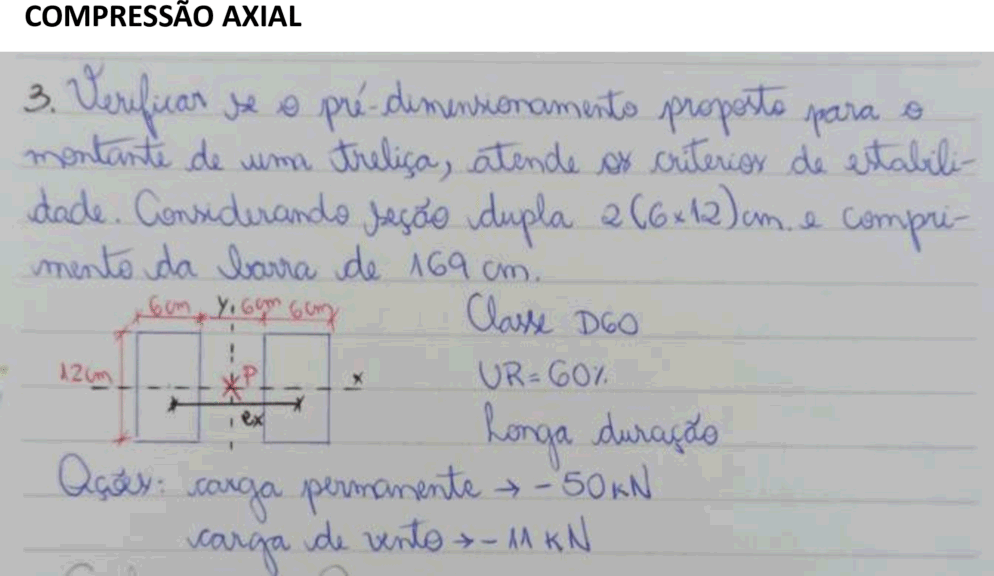 COMPRESSÃO AXIAL
3. Verificar se o pré-dimensionamento proposto para o
montante de uma treliça, atende os criterios de estabili-
dade. Considerando seção dupla 2(6x12)cm. e compri-
mento da barra de 169 cm.
6cm y 6cm 6cm
Classe D60
12cm P x
UR=60%
ex
Longa duração
Ações: carga permanente → -50KN
carga de vento → -11 KN